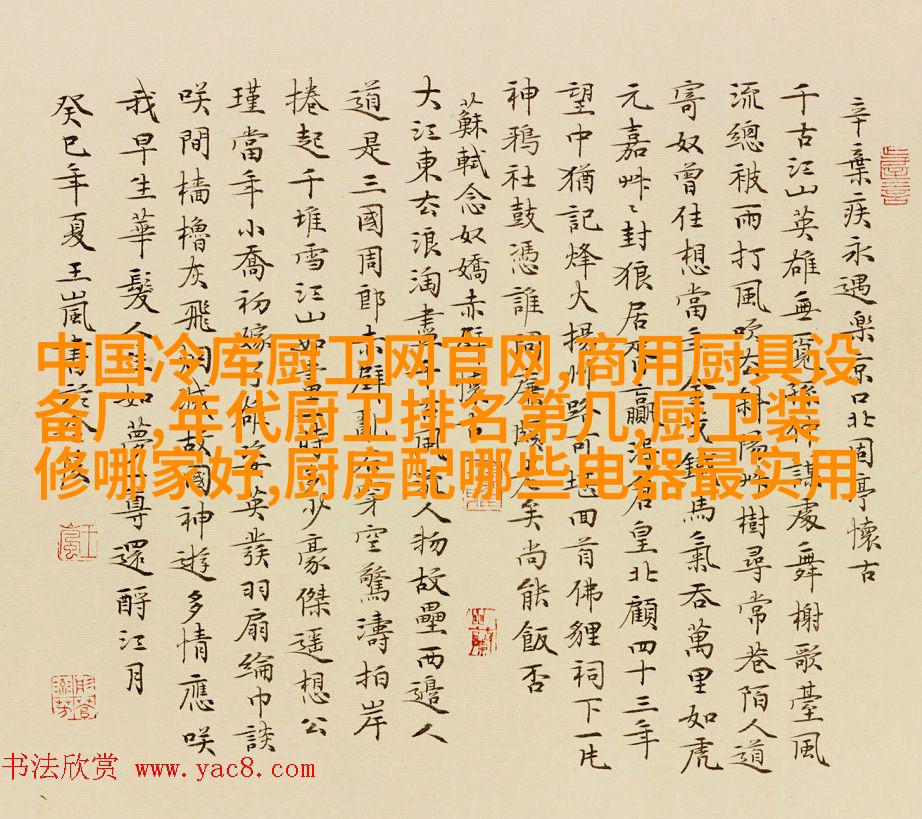 辛棄疾永遇樂京口北固亭懷古
千古江山英雄無覓孫仲謀處舞榭歌臺風
流總被雨打風吹去斜陽艸樹尋常巷陌人道
寄奴曾住想當年金戈鐵馬氣吞萬里如虎
元嘉艸〻封狼居胥贏得倉皇北顧四十三年
望中猶記烽火揚州路可堪回首佛貍祠下一片
神鴉社鼓憑誰問廉頗老矣尚能飯否
蘇軾念奴嬌赤壁懷古
大江東去浪淘盡千古風流人物故壘西邊人
道是三國周郎赤壁亂石穿空驚濤拍岸
捲起千堆雪江山如畫一時多少豪傑遥想公
瑾當年小喬初嫁了雄姿英發羽扇綸巾談
咲間檣櫓灰飛烟滅故國神遊多情應咲
我早生華髮人生如夢一尊還酹江月
癸巳年夏王嵐書於
中国冷库厨卫网官网,商用厨具设
备厂,年代厨卫排名第几,厨卫装
修哪家好,厨房配哪些电器最实用
书法欣赏 www.yac8.com